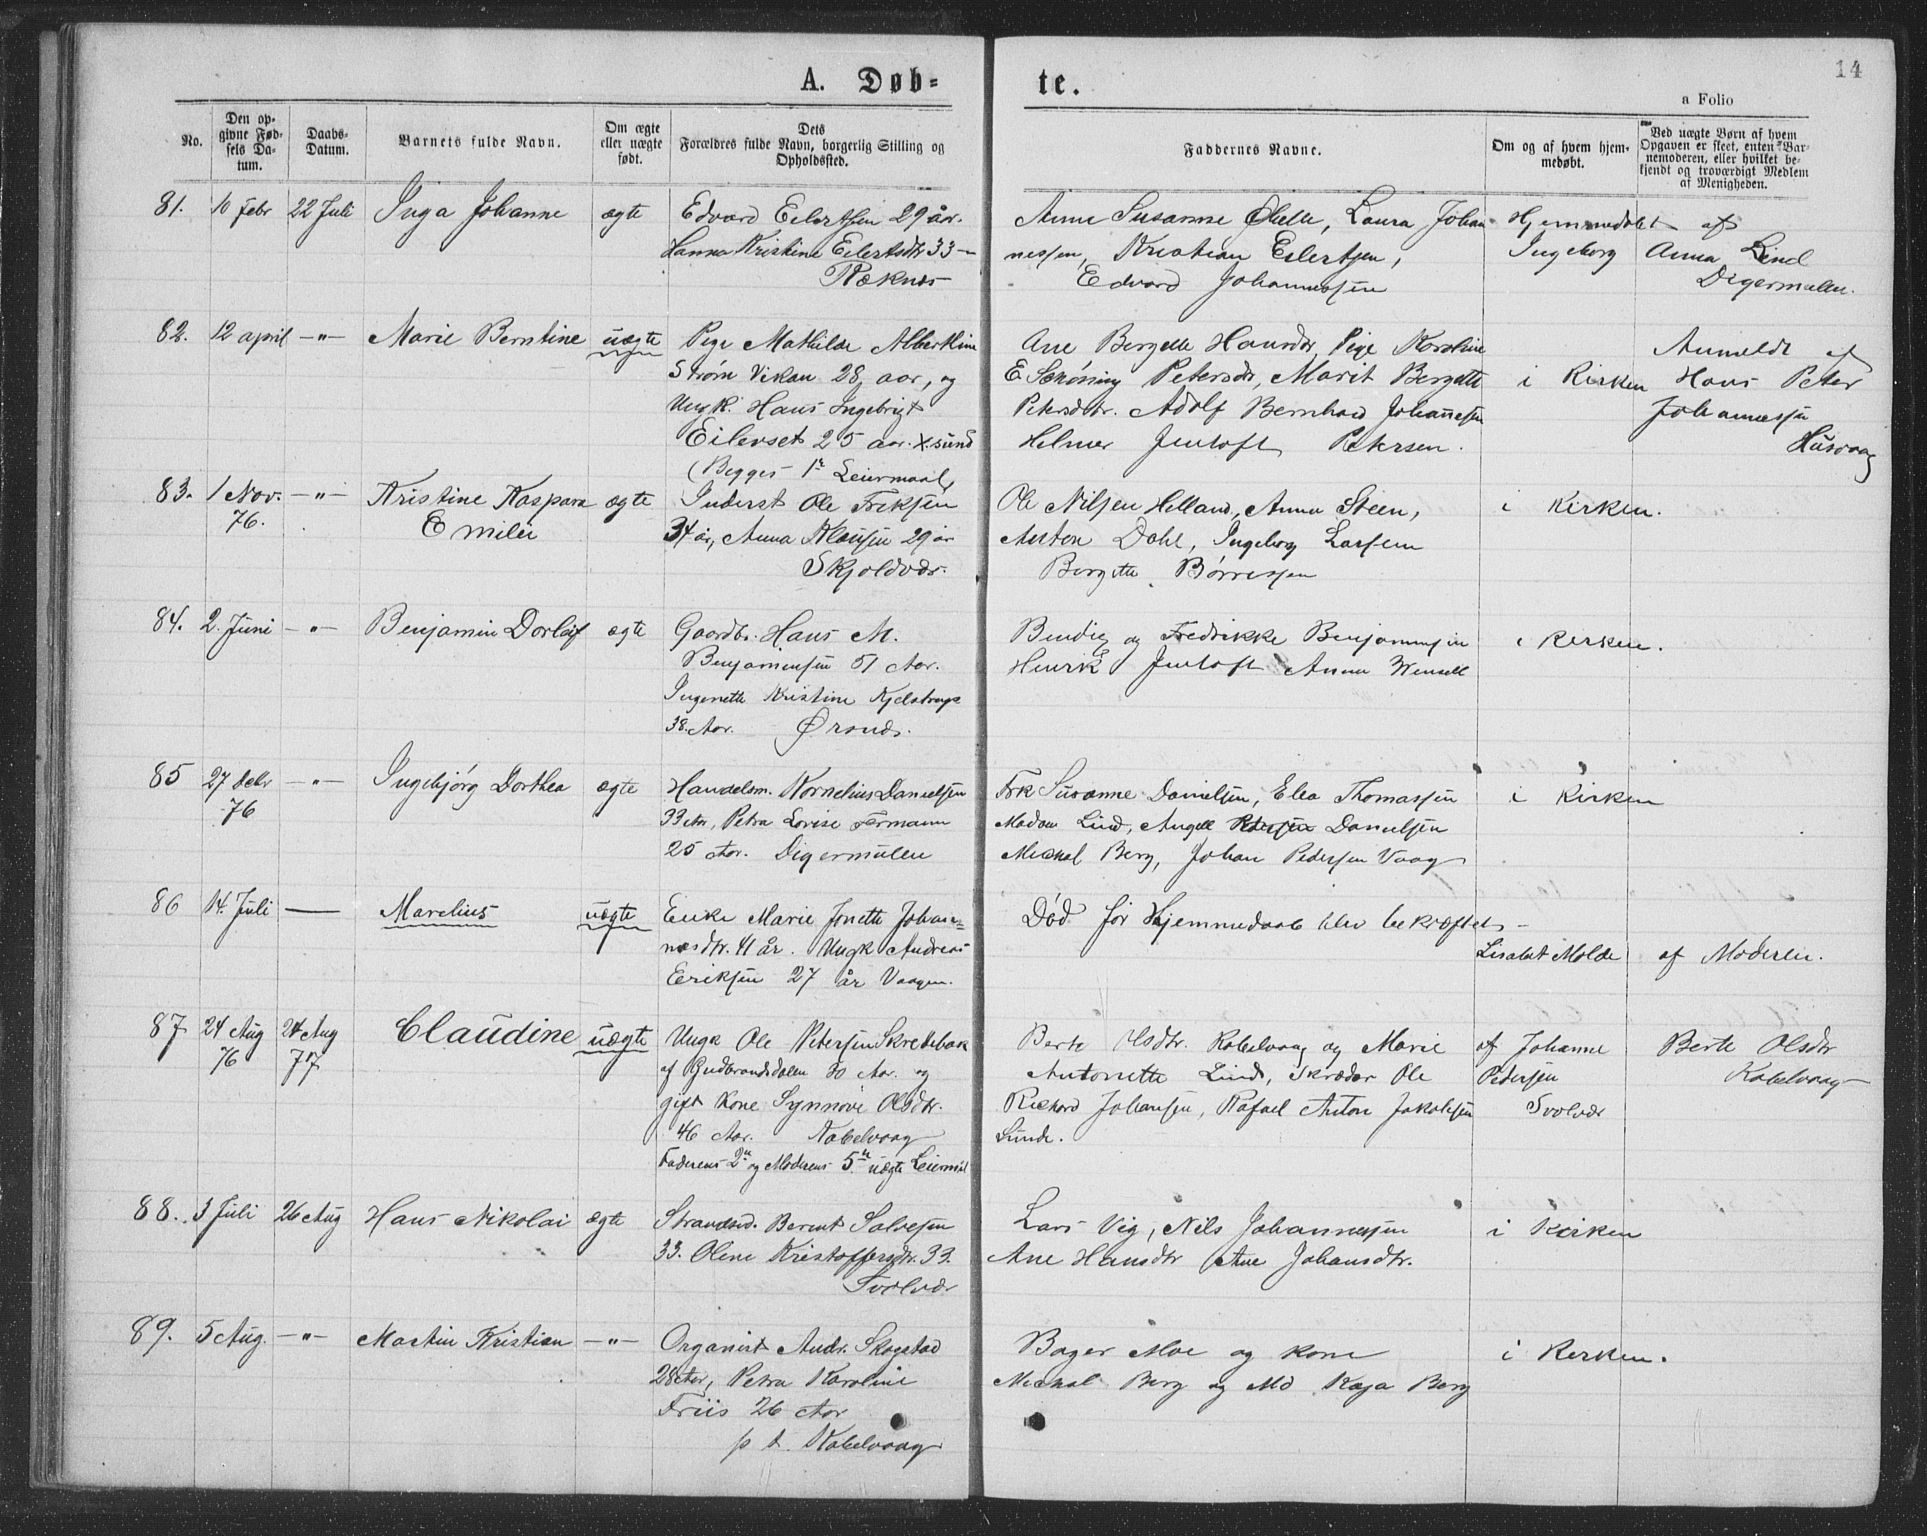 14
A. Døb-
te.
a Folio
No.
Den op-
givne Fød-
sels Da-
tum.
Daabs-
Datum.
Barnets fulde Navn.
Om ægte
eller uægte
født.
Dets
Forældres fulde Navn, borgerlig Stilling og
Opholdssted.
Faddernes Navne.
Om og af hvem hjem-
medøbt.
Ved uægte Børn af hvem
Opgaven er skeet, enten Bar-
nemoderen, eller hvilket be-
kjendt og troværdigt Medlem
af Menigheden.
81. 10 Febr 22 Juli Inga Johanne ægte Edvard Eilertsen 29 år.
Hanna Kristine Eilertsdtr 33 —
Ræknes
Anne Susanne, Laura Johan
nessen, Kristian Eilertsen,
Edvard Johannessen
Hjemmedøbt af
Ingeborg Anna Lind
Digermulen.
82. 12 april —"— Marie Berntine uægte Pige Mathilde Alberthine
Strøm Vikan 28 aar, og
Ungk. Hans Ingebrigt
Eilevset 25 aar X.sund
(Begges 1ste Leiermaal)
Ane Bergette Hansdtr, Pige Karoline
E Schøning Petersdtr, Marit Bergette
Petersdtr. Adolf Bernhard Johannesen
Helmer Jentoft Petersen.
i Kirken
Anmeldt af
Hans Peter
Johannessen
Husvaag
83. 1 Nov. 76. —"— Kristine Kaspara
Emilie
ægte Inderst Ole Eriksen
34 år, Anna Klausen 29 år
Skjoldvær.
Ole Nilsen Helland, Anna Steen,
Anton Dahl, Ingeborg Larsen
Bergette Børresen
i Kirken.
84. 2. Juni —"— Benjamin Dorleif ægte Gaardbr. Hans M.
Benjaminsen 51 Aar.
Ingenette Kristine Kjelstrup
38 Aar. Ørsnes.
Bendig og Fredrikke Benjaminsen
Henrik Jentoft Anna Wensell
i Kirken.
85 27 Debr 76 —"— Ingebjørg Dorthea ægte Handelsm. Kornelius Danielsen
33 Aar, Petra Lovise Formann
25 Aar. Digermulen
Frk Susanne Danielsen, Elea Thomassen
Madam Lind, Angell Pedersen Danielsen
Mickal Berg, Johan Pedersen Vaag
i Kirken
86 14. Juli — Marelius uægte Enke Marie Jonette Johan-
nesdtr. 41 år. Ungk Andreas
Eriksen 27 år Vaagen.
Død før Hjemmedaab blev bekræftet —
Lisabet Molde af Moderen.
87 24 Aug 76 24 Aug 77 Claudine uægte Ungk Ole Petersen Skredebak
af Gudbrandsdalen 30 Aar. og
gift Kone Synnøve Olsdtr.
46 Aar. Kabelvaag
Faderens 2det og Moderens 5te uægte Leiermaal
Berte Olsdtr. Kabelvaag og Marie
Antonette Lind, Skræder Ole
Rickard Johansen, Rafael Anton Jakobsen
Lunde.
af Johanne
Pedersen
Svolvær
Berte Olsdtr
Kabelvaag
88. 3 Juli 26 Aug Hans Nikolai ægte Strandsd. Bernt Salvesen
33. Oline Kristoffersdtr. 33.
Svolvær
Lars Vig, Nils Johannessen
Ane Hansdtr Ane Johansdtr.
i Kirken
89. 5 Aug. —"— Martin Kristian —"— Organist Andr. Skogstad
28 Aar, Petra Karoline
Friis 26 Aar
p t. Kabelvaag
Bager Moe og Kone
Mickal Berg og Md Kaja Berg
i Kirken.